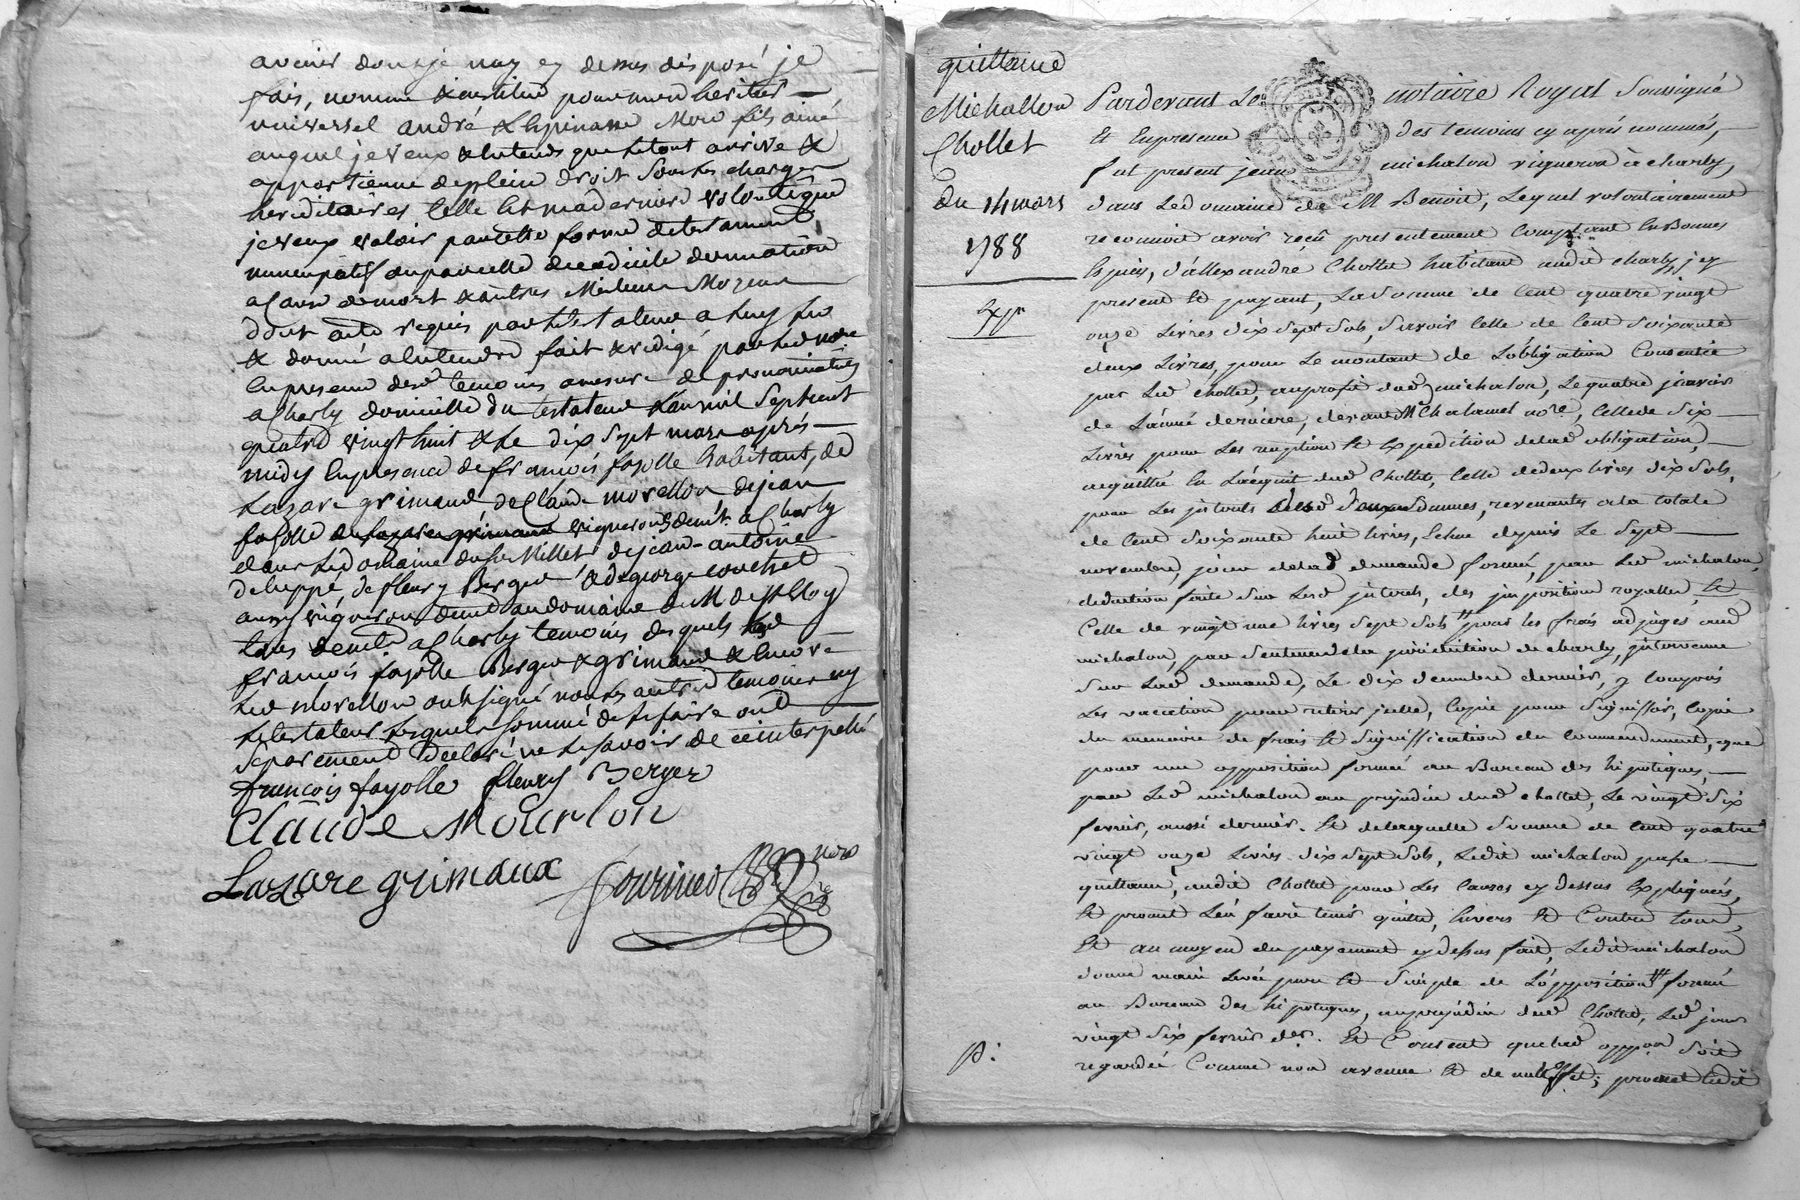 avenir dont je nay cy dessus disposé je
fais, nomme & institue pour mon heritier
universel andré & lhpinasse Mon fils ainé
auquel je veux & entends que le tout arrive &
appartienne de plein droit sous les charges
hereditaires, telle est ma derniere volonté que
je veux valoir par cette forme de testament
nuncupatif ou par celle de codicile donnation
a cause de mort & autres Meilleurs Moyens
dont acte requis par le testateur a luy lu
& donné a entendre fait & redigé par led no.re
en presence desd temoins a mesure de prononciation
a Charly domicille du testateur l'an mil sept cent
quatre vingt huit & le dix sept mars aprés
midy en presence de francois fayolle habitant, de
Lazare grimaud, de Claude morellon de jean
fayolle vignerons demt. a Charly
dans le domaine du sr Millet, de jean-antoine
deluppé, de fleury Berger & de george couchet
aussy vigneron demt au domaine de M de
tous demt. a Charly temoins desquels led
francois fayolle Berger & grimaud & encore
led morellon ont signé non les autres temoins ny
le testateur lesquels sommé de le faire ont
separement declaré ne le savoir de ce interpellé
francois fayolle fleury Berger
Claude Mourlon
Lazare grimaux
quittance
Michallon
Chollet
du 14 mars
1788
Expn
Pardevant Le notaire Royal soussigné
Et En presence des temoins cy aprés nommés,
fut present jean michalon vigneron à charly,
dans le domaine de M Benoit, Lequel volontairement
reconnoit avoir reçû presentement comptant En Bonnes
Espèces, d'allexandre Chollet habitant audit charly, icy
present Et payant, La somme de Cent quatre vingt
onze Livres dix sept sols, savoir Celle de Cent soixante
deux Livres, pour Le montant de L'obligation Consentie
par Led chollet, au profit dud michalon, Le quatre janvier
de L'année derniere, devant Me Chalamel nore, Celle de six
Livres pour Les reception Et Expedition de lad obligation,
acquittée En L'acquit dud Chollet, Celle de deux livres dix sols,
pour Les interets desd deux sommes, revenantes a la totale
de Cent soixante huit livres, Echue depuis Le sept
novembre, jour de lad demande formée, par Led michalon,
deduction faite sur Lesd interets, des impositions royalles, Et
Celle de vingt une livres sept sols pour les frais adjugés aud
michalon, par sentence de la jurisdiction de charly, intervenue
sur Lad demande, Le dix decembre dernier, y compris
Les vacation pour retirer icelle, Copie pour signiffier, Copie
du memoire de frais Et signiffication du Commandement, que
pour une opposition formée au Bureau des hipotèques,
par Led michalon au prejudice dud chollet, Le vingt six
fevrier, aussi dernier. Et de laquelle somme de Cent quatre
vingt onze Livres dix sept sols, Ledit michalon passe
quittance, audit Chollet pour Les Causes cy dessus Expliquées,
Et promet L'en faire tenir quitte, Envers Et Contre tous,
Et au moyen du payement cy dessus fait, Ledit michalon
donne main Levée pure Et simple de L'opposition formée
au Bureau des hipotèques, au prejudice dud Chollet, Led jour
vingt six fevrier der. Et Consent que lad oppon soit
regardée Comme non avenue Et de nul Effet; promet ledit
P: